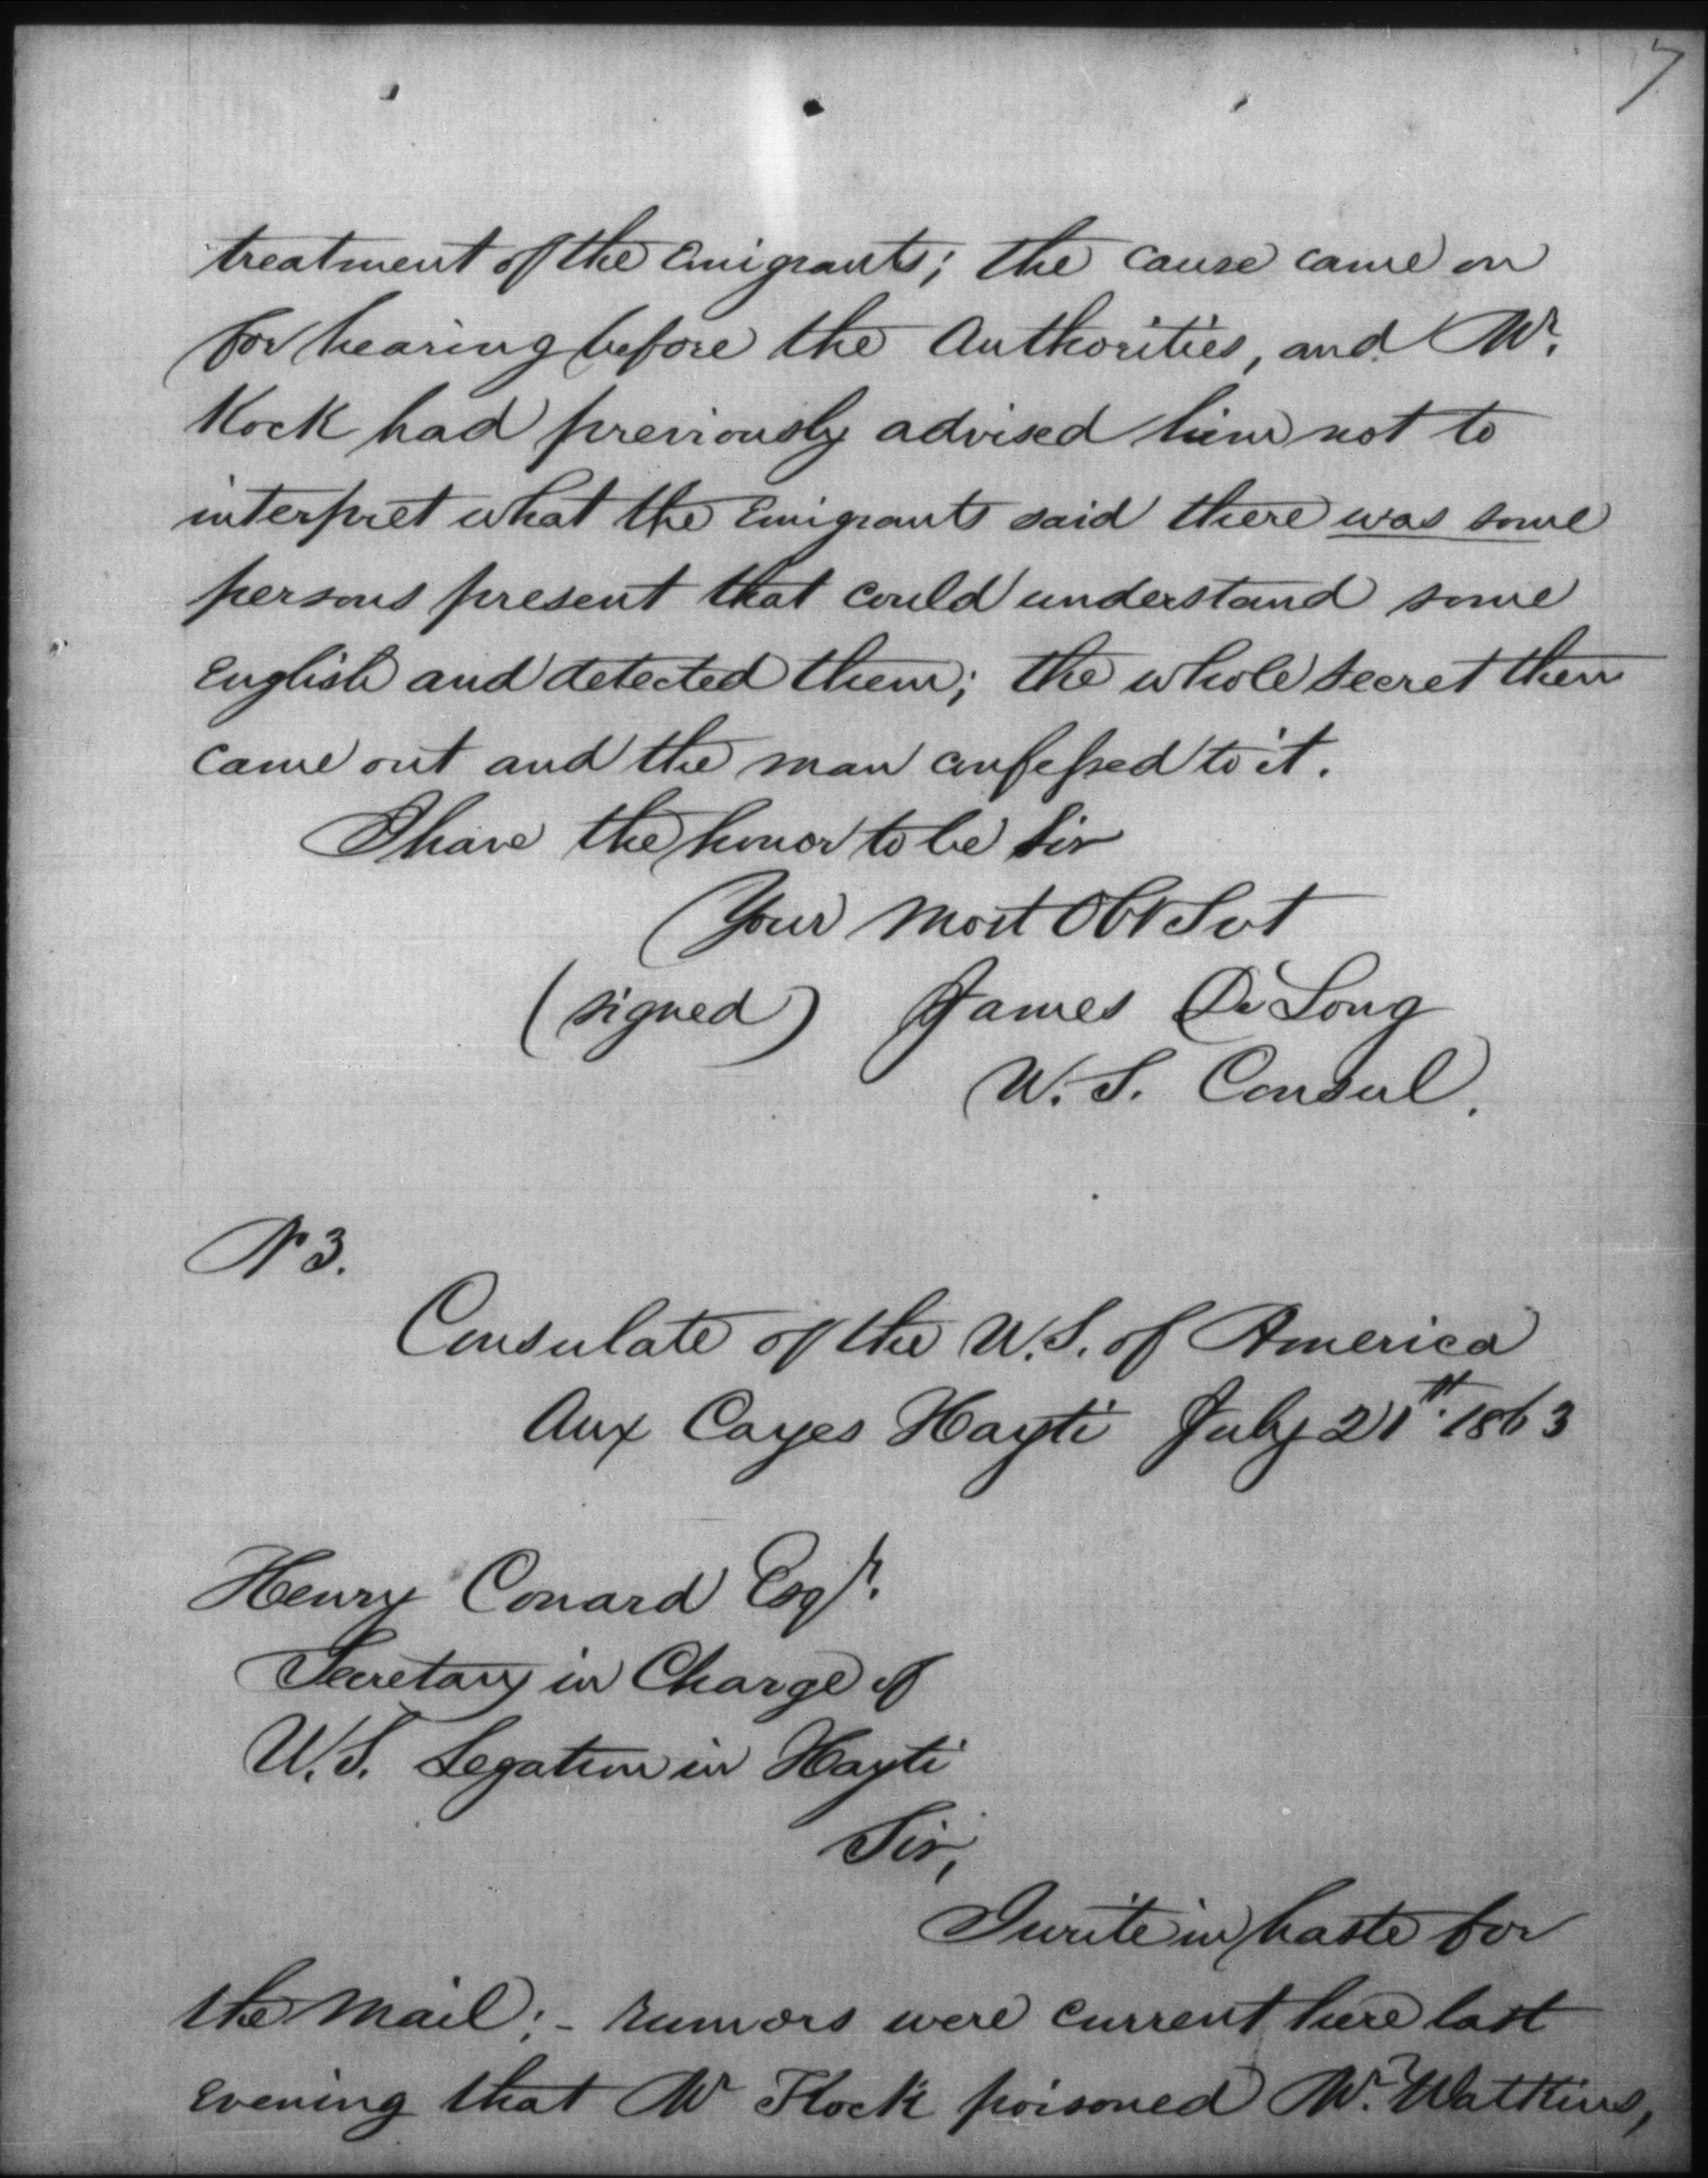 7
treatment of the Emigrants; the cause came on
for hearing before the Authorities, and Mr.
Kock had previously advised him not to
interpret what the Emigrants said there was some
persons present that could understand some
English and detected them; the whole secret then
came out and the man confessed to it.
I have the honor to be Sir
Your most Obt Svt
(signed) James De Long
U.S. Consul.
No 3.
Consulate of the U.S. of America
Aux Cayes Hayti July 21st. 1863
Henry Conard Esqr.
Secretary in Charge of
U.S. Legation in Hayti
Sir,
I write in haste for
the mail; - rumors were current here last
evening that Mr Kock poisoned Mr. Watkins,